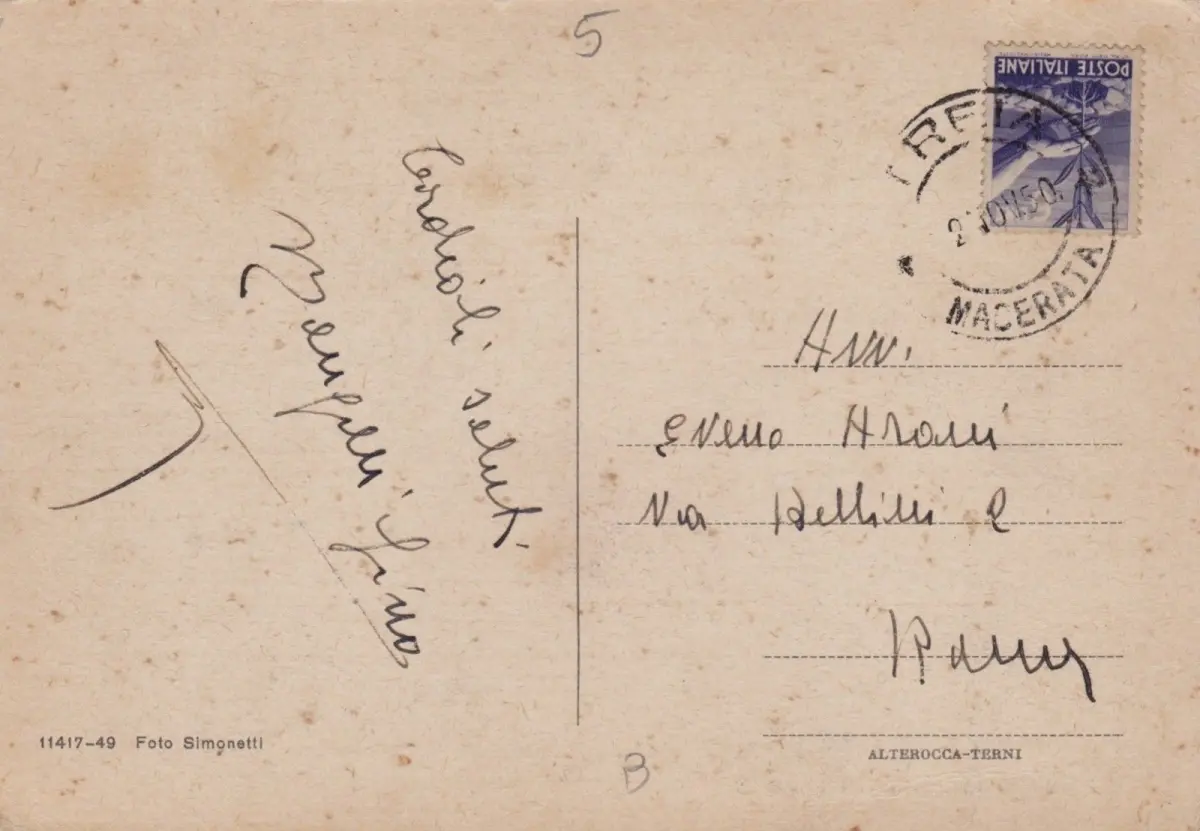 5
POSTE ITALIANE
TREIA
2 NOV.50.
MACERATA
Cordiali saluti
Gino
Avv.
Via Bellini 2
Roma
11417-49 Foto Simonetti
ALTEROCCA-TERNI
B